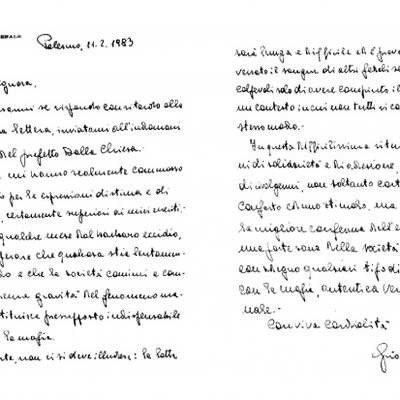 Palermo, 11.2.1983
ignora,
usarmi se rispondo con ritardo alla
a lettera, inviatami all'indomani
del prefetto Dalla Chiesa.
mi hanno realmente commosso
per le espressioni di stima e di
, certamente superiori ai miei meriti.
qualche mese dal barbaro eccidio,
perare che qualcosa stia lentamen-
do e che la società cominci a com-
gravità del fenomeno ma-
stituisce presupposto indispensabile
la mafia.
te, non ci si deve illudere: la lotta
sarà lunga e difficile ed è prev
versato il sangue di altri fedeli se
colpevoli solo di avere compiuto il
un contesto in cui non tutti si co
stesso modo.
In questa difficilissima situa
ni di solidarietà e di adesione,
di rivolgermi, non soltanto
conforto ed uno stimolo, ma
la migliore conferma dell'e
una parte sana della società
con sdegno qualsiasi tipo di
con la mafia, autentica ver
nale.
Con viva cordialità
Gio